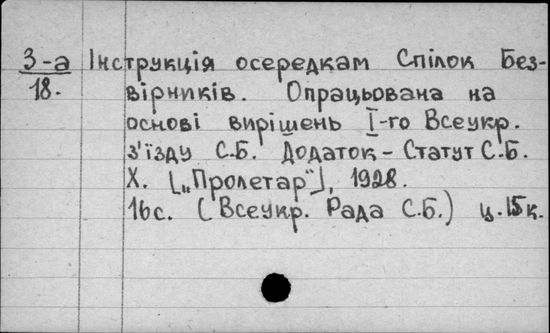 3-а Інструкція осередкам Спілок Без-
18. вірників. Опрацьована на
основі вирішень І-го Всеукр.
з'їзду С.Б. Додаток - Статут С.Б.
Х. [„Пролетар"], 1928.
16с. (Всеукр. Рада С.Б.) ц. 15к.